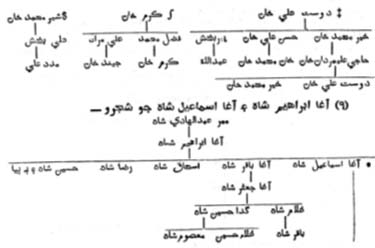 ‡ دوست علي خان ∫ ڪرم خان §شير محمد خان
خير محمد خان حسن علي خان ؛ ربخش فضل محمد علي مراد علي بخش
حاجي علم مردان خان خان محمد خان عبدالله ڪرم خان جيند خان مدد علي
دوست علي خان خير محمد خان
(٩) آغا ابراهيم شاه ۽ آغا اسماعيل شاه جو شجرو —
مير عبدالهادي شاه
آغا ابراهيم شاه
• آغا اسماعيل شاه آغا باقر شاه اسحاق شاه رضا شاه حسين شاه ۽ ٻيا
آغا جعفر شاه
غلام شاه گدا حسين شاه
باقر شاه غلام حسين معصوم شاه